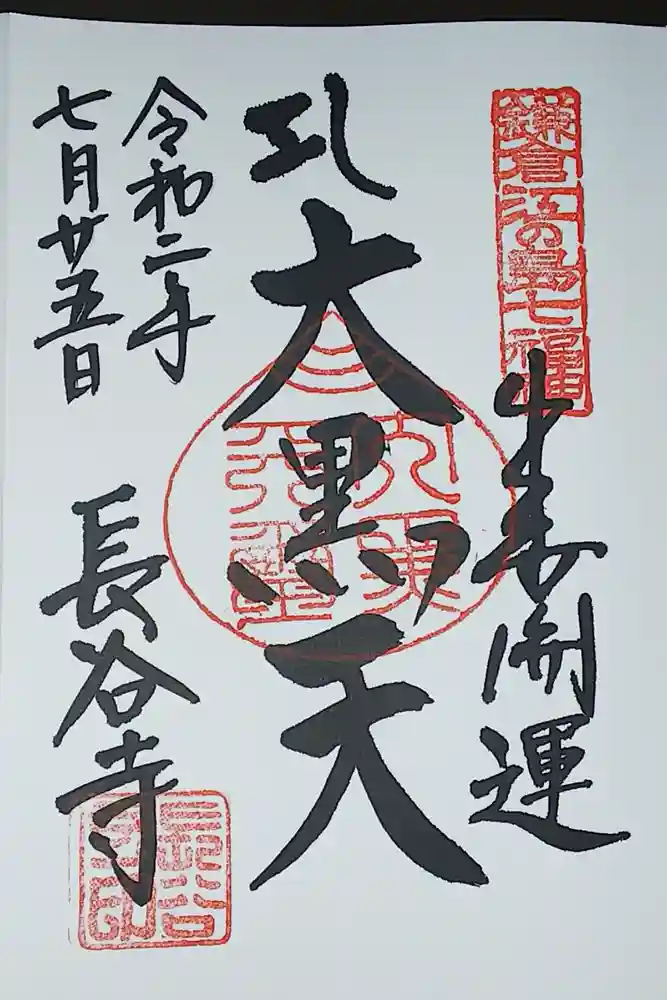 鎌倉江の島七福
出世開運
大黒天
令和二年
七月廿五日
長谷寺
長谷
寺印